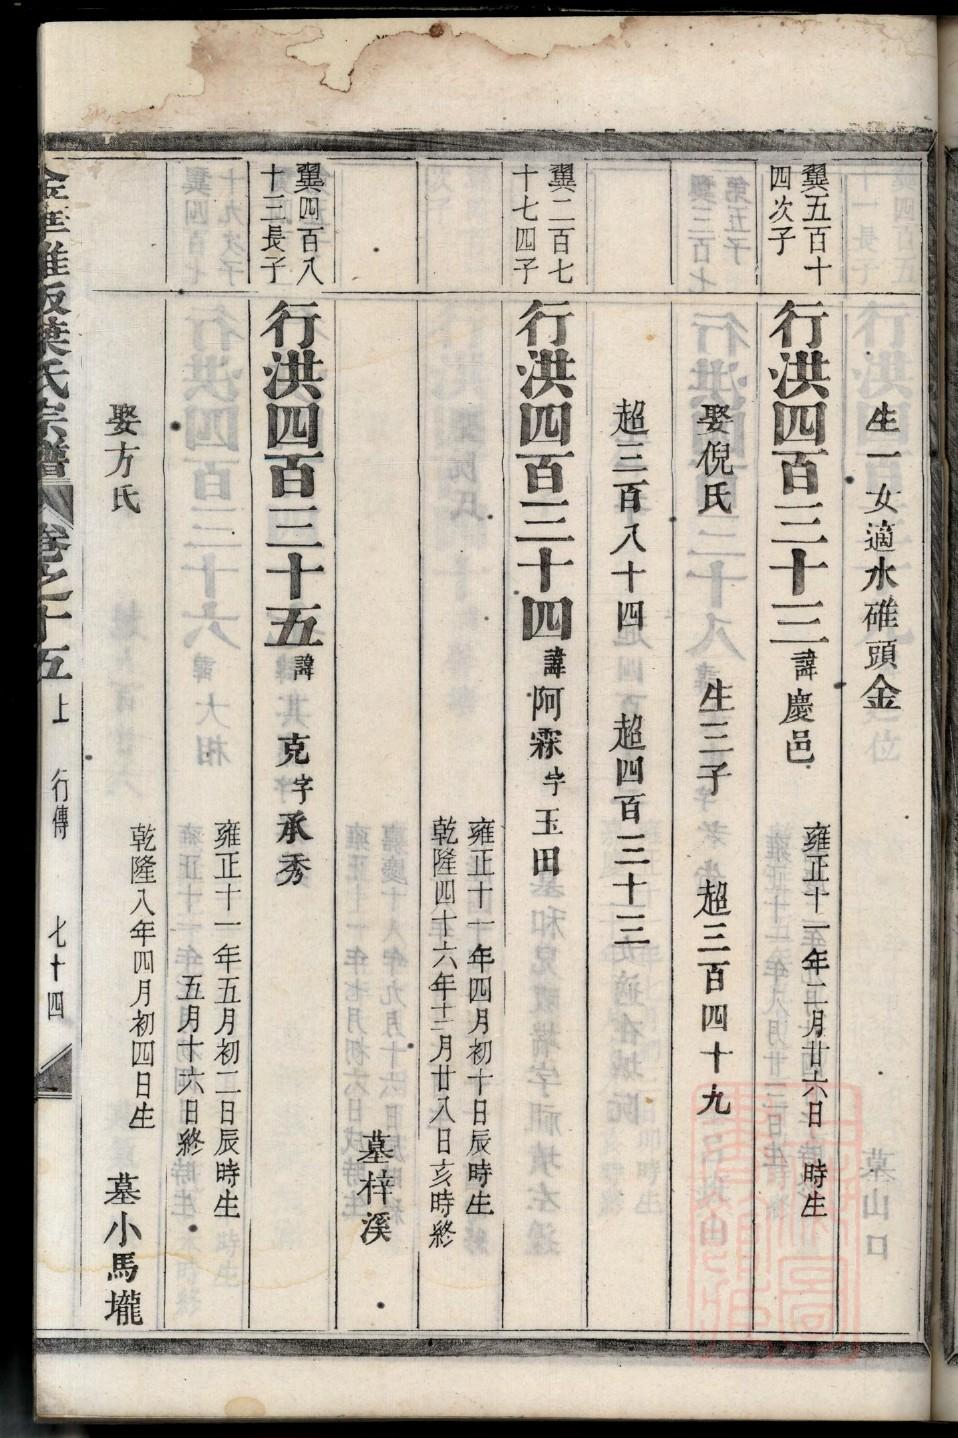 生一女適水碓頭金
翼五百十四次子
行洪四百三十三諱慶邑
雍正十一年二月廿六日 時生
娶倪氏 生三子 超三百四十九
超三百八十四 超四百三十三
翼二百七十七四子
行洪四百三十四諱阿霖字玉田
雍正十一年四月初十日辰時生
乾隆四十六年十二月廿八日亥時終
墓梓溪
翼四百八十三長子
行洪四百三十五諱克字承秀
雍正十一年五月初二日辰時生
五月十六日終
乾隆八年四月初四日生
娶方氏 墓小馬壠
葉氏宗譜 卷之十五上 行傳 七十四